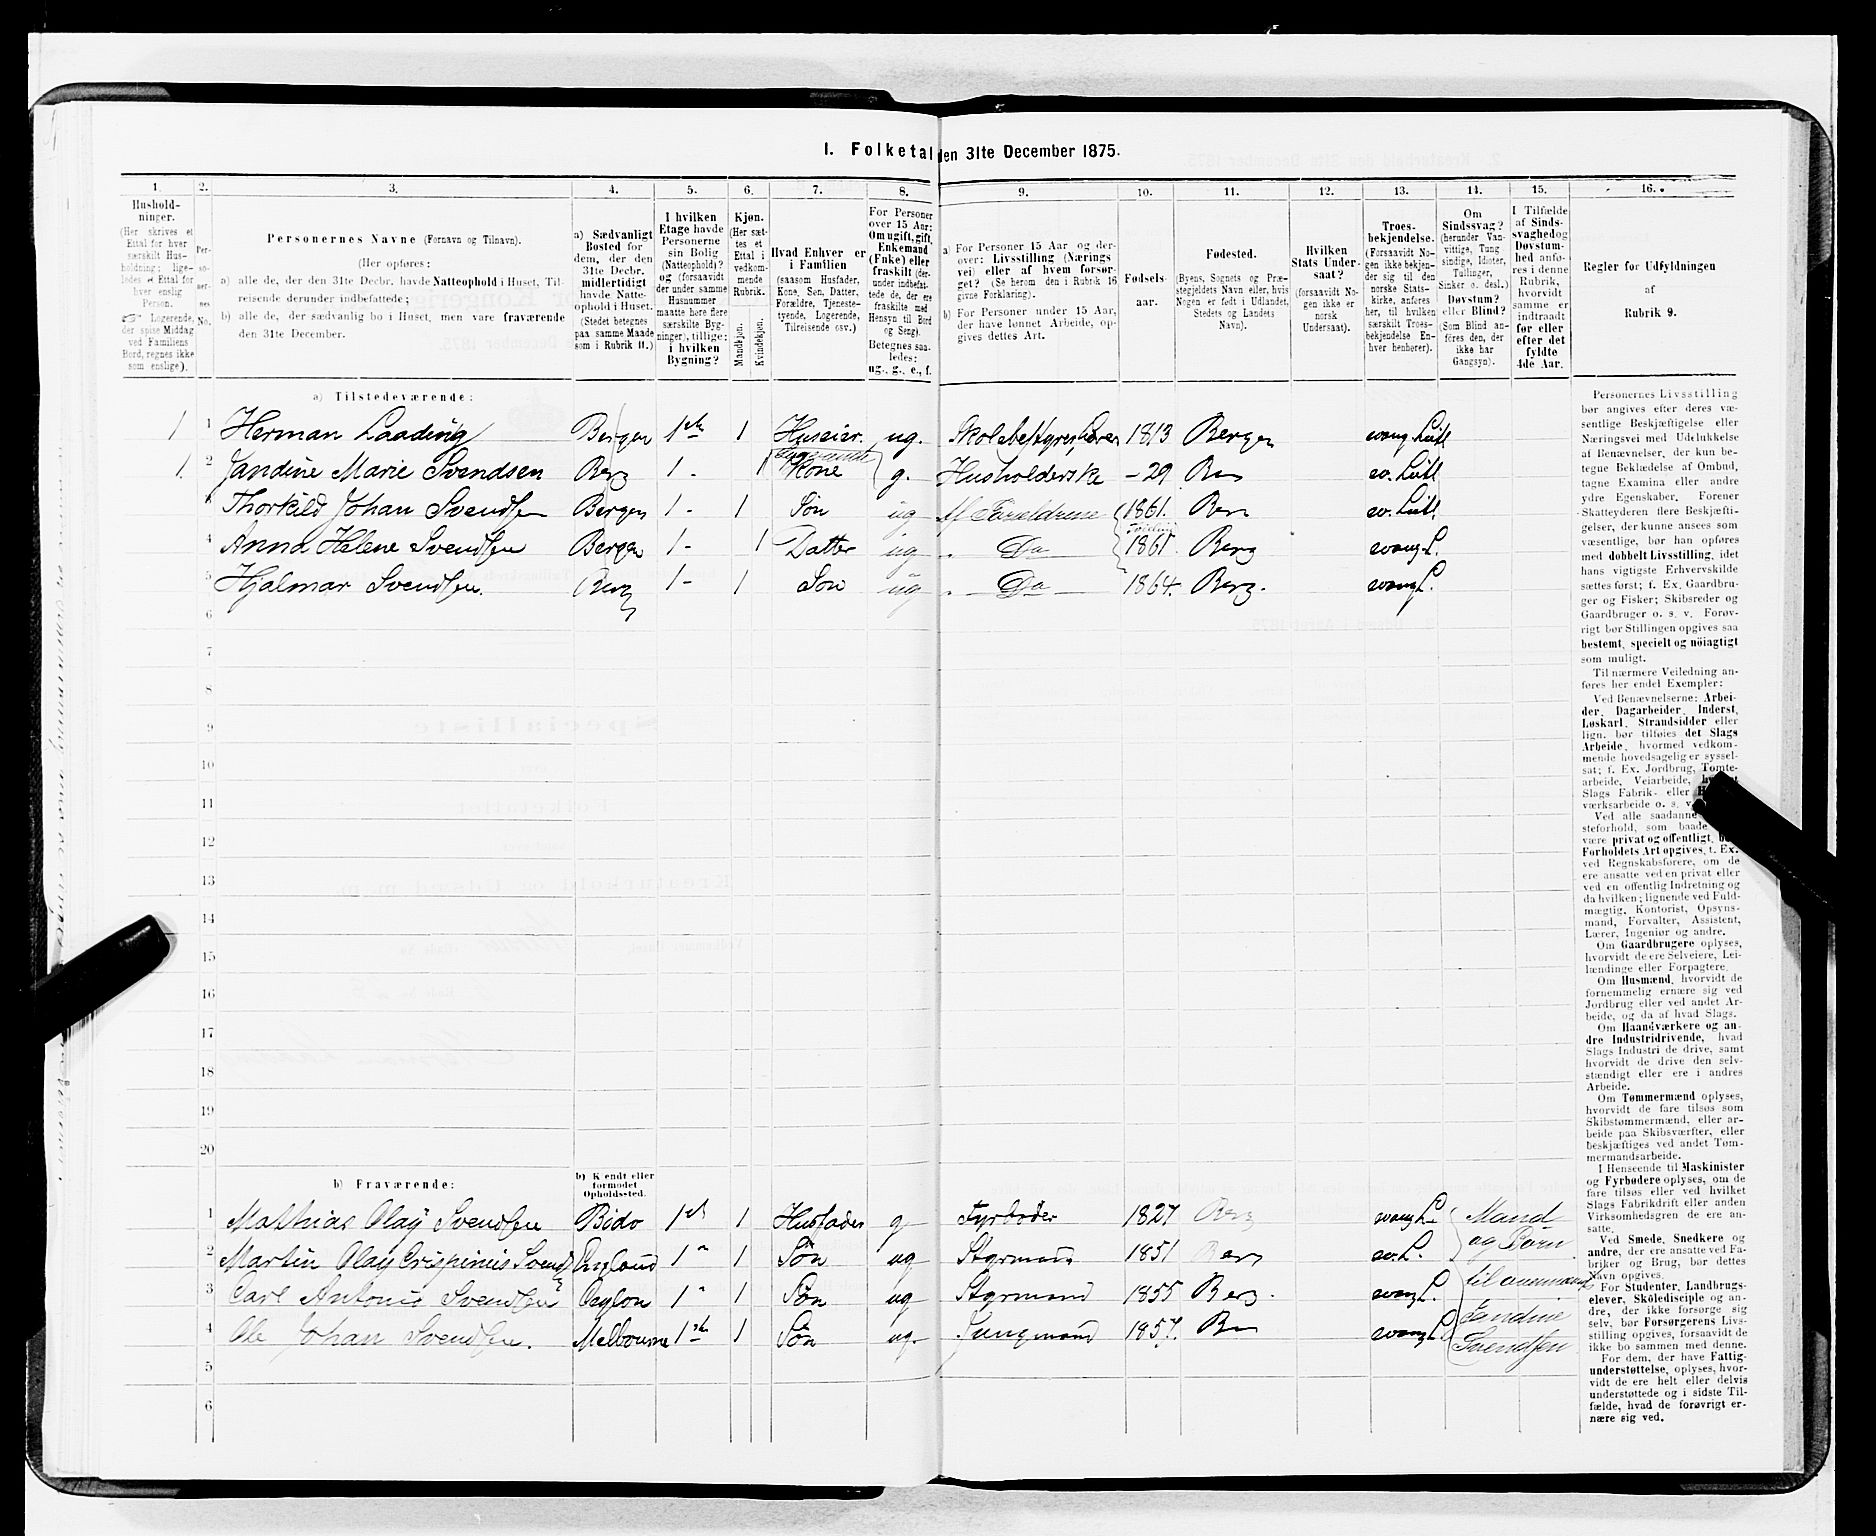 1. Folketal den 31te December 1875.
1. 2. 3. 4. 5. 6. 7. 8. 9. 10. 11. 12. 13. 14. 15. 16.
Hushold-
ninger.
(Her skrives et
Ettal for hver
særskilt Hus-
holdning; lige-
ledes et Ettal for
hver enslig
Person.
Logerende,
der spise Middag
ved Familiens
Bord, regnes ikke
som enslige).
Per-
so-
ner-
nes
No.
Personernes Navne (Fornavn og Tilnavn).
(Her opføres:
a) alle de, der den 31te Decbr. havde Natteophold i Huset, Til-
reisende derunder indbefattede;
b) alle de, der sædvanlig bo i Huset, men vare fraværende
den 31te December.
a) Sædvanligt
Bosted for
dem, der den
31te Decbr.
midlertidigt
havde Natte-
ophold i Huset.
(Stedet betegnes
paa samme Maade
som i Rubrik 11.)
I hvilken
Etage havde
Personerne
sin Bolig
(Natteophold)?
og (forsaavidt
der under samme
Hasnummer
maatte høre flere
særskilte Byg-
ninger), tillige:
i hvilken
Bygning?
Kjøn.
(Her sæt-
tes et
Ettal i
vedkom-
mende
Rubrik.
Mandkjøn.
Kvindekjøn.
Hvad Enhver er
i Familien
(saasom Husfader,
Kone, Søn, Datter,
Forældre, Tjeneste-
tyende, Logerende,
Tilreisende osv.)
For Personer
over 15 Aar:
Om ugift, gift,
Enkemand
(Enke) eller
fraskilt (der-
under indbefat-
tede de, der ere
fraskilte med
Hensyn til Bord
og Seng).
Betegnes saa-
ledes:
ug., g., e., f.
a) For Personer 15 Aar og der-
over: Livsstilling (Nærings
vei) eller af hvem forsør-
get? (Se herom den i Rubrik 16
givne Forklaring).
b) For Personer under 15 Aar,
der have lønnet Arbeide, op-
gives dettes Art.
Fødsels-
aar.
Fødested.
(Byens, Sognets og Præ-
stegjeldets Navn eller, hvis
Nogen er født i Udlandet,
Stedets og Landets
Navn).
Hvilken
Stats Under-
saat?
(forsaavidt No-
gen ikke er
norsk
Undersaat).
Troes-
bekjendelse.
(Forsaavidt No-
gen ikke bekjen-
der sig til den
norske Stats-
kirke, anføres
her, til hvilken
særskilt Troes-
bekjendelse En-
hver henhører).
Om
Sindssvag?
(herunder Van-
vittige, Tung
sindige, Idioter,
Tullinger,
Sinker o. desl.)
Døvstum?
eller Blind?
(Som Blind an-
føres den, der
ikke har
Gangsyn).
I Tilfælde
af Sinds-
svaghed og
Døvstum-
hed anfø-
res i denne
Rubrik,
hvorvidt
samme er
indtraadt
før eller
efter det
fyldte
4de Aar.
Regler for Udfyldningen
af
Rubrik 9.
a) Tilstedeværende:
1 1 Herman Laading Bergen 1ste 1 Huseier. ug. Skolebestyrer, Lærer 1813 Bergen evang Luth
1. 2 Jandine Marie Svendsen Berg 1- 1 Kone g. Husholderske -29 Ber ev. Luth
3 Thorkild Johan Svendsen Bergen 1- 1 Søn ug af Forældrene 1861. Ber ev. Luth
4 Anna Helene Svendsen Bergen 1- 1 Datter ug " Do 1861 Berg evang L.
5 Hjalmar Svendsen. Berg 1- 1 Søn ug " Do 1864. Berg. evang L.
6
7
8
9
10
11
12
13
14
15
16
17
18
19
20
b) Fraværende:
b) Kjendt eller
formodet
Opholdssted.
1 Mathias Olay Svendsen Bodo 1ste 1 Husfader g Fyrbøder 1827 Berg evang L. Mand
2 Martin Olay Crispinus Svends England 1" 1 Søn ug Styrmand 1851 Ber ev. L. og Børn
3 Carl Antonis Svendsen Ceylon 1" 1 Søn ug Styrmand 1855 Berg. evang L. til
4 Ole Johan Svendsen. Melbourne 1ste 1 Søn ug. Jungmand 1857. Ber evang L. Jandine
Svendsen
5
6
Personernes Livsstilling
bør angives efter deres væ-
sentlige Beskjæftigelse eller
Næringsvei med Udelukkelse
af Benævnelser, der kun be-
tegne Beklædelse af Ombud,
tagne Examina eller andre
ydre Egenskaber. Forener
Skatteyderen flere Beskjæfti-
gelser, der kunne ansees som
væsentlige, bør han opføres
med dobbelt Livsstilling, idet
hans vigtigste Erhvervskilde
sættes først; f. Ex. Gaardbru-
ger og Fisker; Skibsreder og
Gaardbruger o. s. v. Forøv-
rigt bør Stillingen opgives saa
bestemt, specielt og nöiagtigt
som muligt.
Til nærmere Veiledning an-
føres her endel Exempler:
Ved Benævnelserne: Arbei-
der, Dagarbeider, Inderst,
Løskarl, Strandsidder eller
lign. bør tilføies det Slags
Arbeide, hvormed vedkom-
mende hovedsagelig er syssel-
sat; f. Ex. Jordbrug, Tomte-
arbeide, Veiarbeide,
Slags Fabrik- eller
værksarbeide o. s. v.
Ved alle saadanne
steforhold, som baade
være privat og offentligt,
Forholdets Art opgives, t. Ex.
ved Regnskabsførere, om de
ere ansatte ved en privat eller
ved en offentlig Indretning og
da hvilken; lignende ved Fuld-
mægtig, Kontorist, Opsyns-
mand, Forvalter, Assistent,
Lærer, Ingeniør og andre.
Om Gaardbrugere oplyses,
hvorvidt de ere Selveiere, Lei-
lændinge eller Forpagtere.
Om Husmænd, hvorvidt de
fornemmelig ernære sig ved
Jordbrug eller ved andet Ar-
beide, og da af hvad Slags.
Om Haandværkere og an-
dre Industridrivende, hvad
Slags Industri de drive, samt
hvorvidt de drive den selv-
stændigt eller ere i andres
Arbeide.
Om Tømmermænd oplyses,
hvorvidt de fare tilsøs som
Skibstømmermænd, eller ar-
beide paa Skibsværfter, eller
beskjæftiges ved andet Tøm-
mermandsarbeide.
I Henseende til Maskinister
og Fyrbødere oplyses, om de
fare tilsøs eller ved hvilket
Slags Fabrikdrift eller anden
Virksomhedsgren de ere an-
satte.
Ved Smede, Snedkere og
andre, der ere ansatte ved Fa-
briker og Brug, bør dettes
Navn opgives.
For Studenter, Landbrugs-
elever, Skoledisciple og an-
dre, der ikke forsørge sig
selv, bør Forsørgerens Livs-
stilling opgives, forsaavidt de
ikke bo sammen med denne.
For dem, der have Fattig-
understøttelse, oplyses, hvor-
vidt de ere helt eller delvis
understøttede og i sidste Til-
fælde, hvad de forøvrigt er-
nære sig ved.